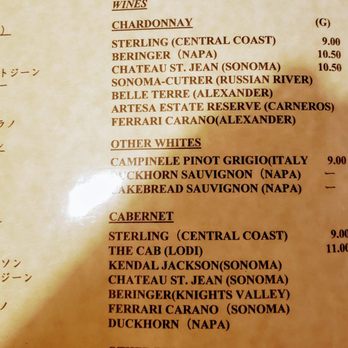 WINES
CHARDONNAY (G)
STERLING (CENTRAL COAST) 9.00
BERINGER (NAPA) 10.50
CHATEAU ST. JEAN (SONOMA) 10.50
SONOMA-CUTRER (RUSSIAN RIVER)
BELLE TERRE (ALEXANDER)
ARTESA ESTATE RESERVE (CARNEROS)
FERRARI CARANO(ALEXANDER)
OTHER WHITES
CAMPINELE PINOT GRIGIO(ITALY 9.00
DUCKHORN SAUVIGNON (NAPA) —
CAKEBREAD SAUVIGNON (NAPA) —
CABERNET
STERLING (CENTRAL COAST) 9.00
THE CAB (LODI) 11.00
KENDAL JACKSON(SONOMA)
CHATEAU ST. JEAN (SONOMA)
BERINGER(KNIGHTS VALLEY)
FERRARI CARANO (SONOMA)
DUCKHORN (NAPA)
トジーン
ラノ
ン
ソン
トジーン
ノ